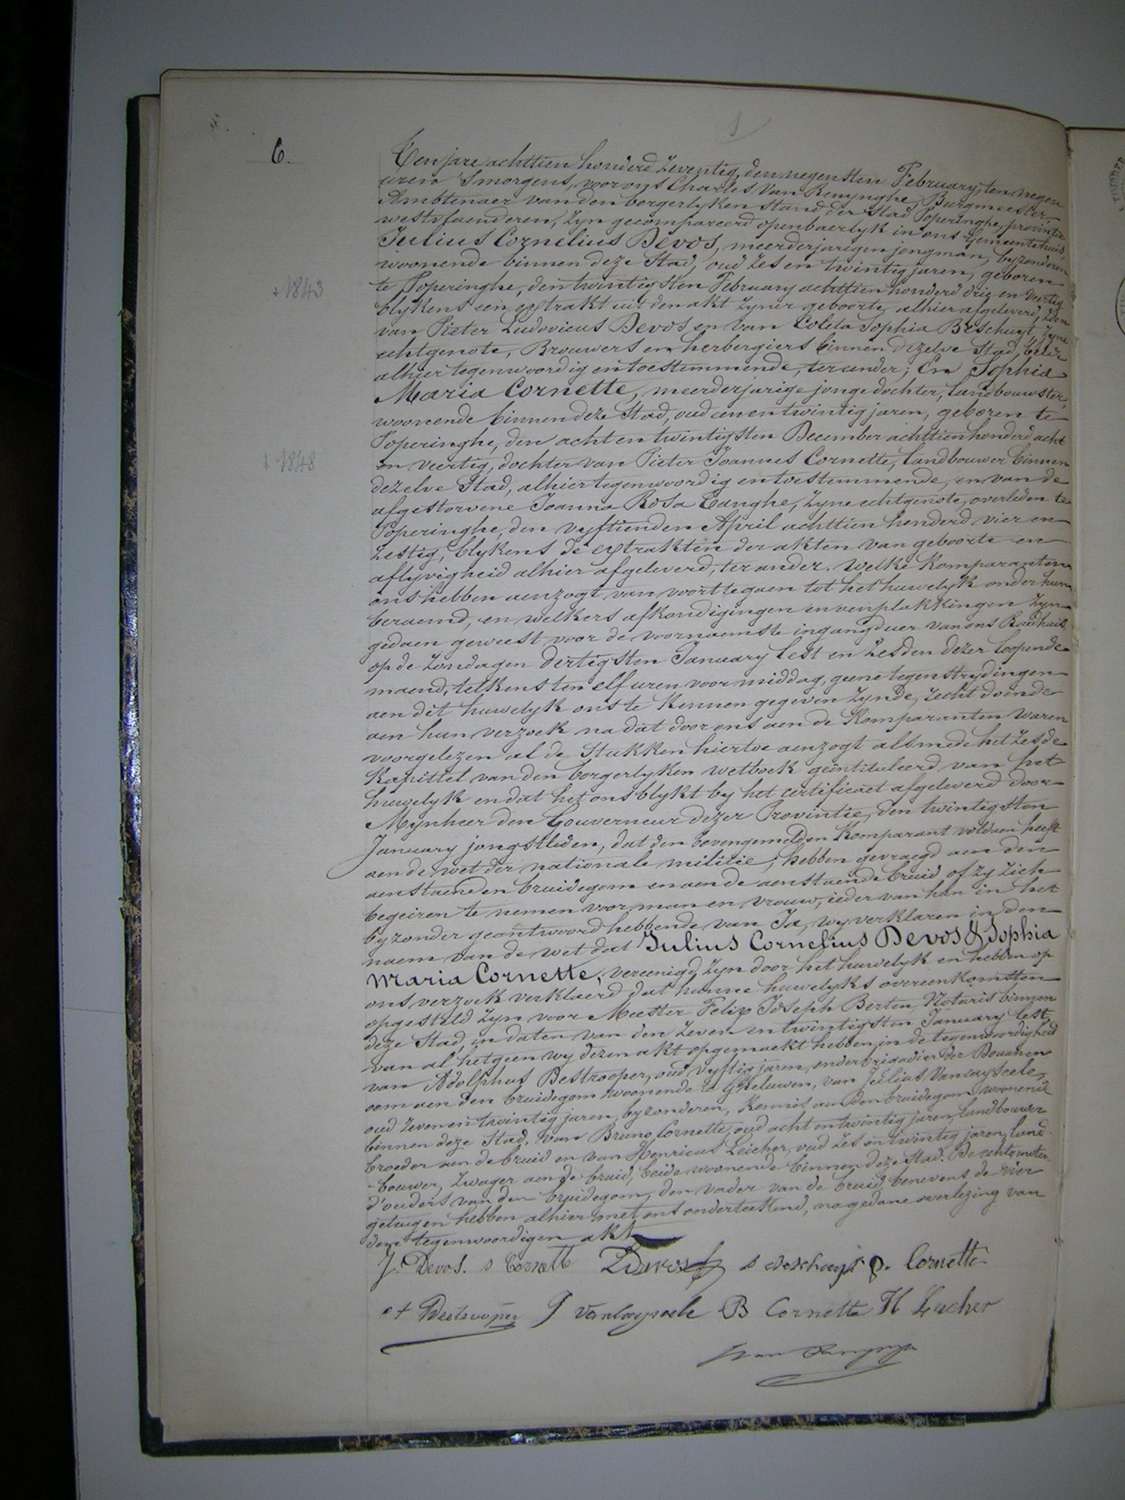 6.
Ten jare achttien honderd zeventig, den negensten February, ten negen
uren 'smorgens, voor ons Charles Van Renynghe, Burgmeester,
Ambtenaer van den borgerlyken stand der Stad Poperinghe, provintie
westvlaenderen, zyn gecompareerd openbaerlyk in ons Gemeentehuis,
Julius Cornelius Devos, meerderjarigen jongman, byzonderen
woonende binnen deze Stad, oud zes en twintig jaren, geboren
te Poperinghe, den twintigsten February achttien honderd drij en veertig
+1843
blykens een extrakt uit den akt zyner geboorte, alhier afgeleverd, zoon
van Pieter Ludovicus Devos en van Coleta Sophia Beschuyt, zyne
echtgenote, Brouwers en herbergiers binnen dezelve Stad, beide
alhier tegenwoordig en toestemmende, ter ander; En Sophia
Maria Cornette, meerderjarige jonge dochter, landbouwster,
woonende binnen deze Stad, oud een en twintig jaren, geboren te
Poperinghe, den acht en twintigsten December achttien honderd acht
+1848
en veertig, dochter van Pieter Joannes Cornette, landbouwer binnen
dezelve Stad, alhier tegenwoordig en toestemmende, en van de
afgestorvene Joanna Rosa Canghe, zyne echtgenote, overleden te
Poperinghe, den vyftienden April achttien honderd vier en
zestig, blykens de extrakten der akten van geboorte en
aflyvigheid alhier afgeleverd, ter ander. Welke Komparanten
ons hebben aenzogt, van voort te gaen tot het huwelyk onder hun
beraemd, en welkers afkondigingen en aenplakkingen zyn
gedaen geweest voor de voornaemste ingangdeur van ons Raedhuis
op de zondagen dertigsten January lest en zesden dezer loopende
maend, telkens ten elf uren voormiddag, geene tegenstrydingen
aen dit huwelyk ons te kennen gegeven zynde, recht doende
aen hun verzoek na dat door ons aen de Komparanten waren
voorgelezen al de Stukken hiertoe aenzogt alsmede het zesde
Kapittel van den borgerlyken wetboek geintituleerd van het
huwelyk en dat het ons blykt by het certificaet afgeleverd door
Mynheer den Gouverneur dezer Provintie, den twintigsten
January jongstleden, dat den bovengemelden Komparant voldaen heeft
aen de wet der nationale militie, hebben gevraegd aen den
aenstaenden bruidegom en aen de aenstaende bruid of zy zich
begeiren te nemen voor man en vrouw, ieder van hun in het
byzonder geantwoord hebbende van Ja, wy verklaren in den
naem van de wet dat Julius Cornelius Devos & Sophia
Maria Cornette, vereenigd zyn door het huwelyk en hebben op
ons verzoek verklaerd dat hunne huwelyks overeenkomsten
opgesteld zyn voor Meester Felix Joseph Berten, Notaris binnen
deze Stad, in daten van den zeven en twintigsten January lest,
van al hetgeen wy dezen akt opgemaekt hebben in de tegenwoordigheid
van Adolphus Bestrooper, oud vyftig jaren, onderbrigadier der Douanen
oom aen den bruidegom, woonende te Gheluwen, van Julius Vanuxseele
oud zeven en twintig jaren, byzonderen, Kennis aen den bruidegom, woonende
binnen deze Stad. Van Bruno Cornette, oud acht en twintig jaren, landbouwer
broeder aen de bruid en van Henricus Leicher, oud zes en twintig jaren, land-
bouwer, zwager aen de bruid, beide woonende binnen deze Stad. De echtgenoten
d'ouders van den bruidegom, den vader van de bruid benevens de vier
getuigen hebben alhier met ons onderteekend, na gedane overlezing van
dezen tegenwoordigen akt.
J. Devos. s Cornette Devos P. Cornette
B Cornette H Leicher